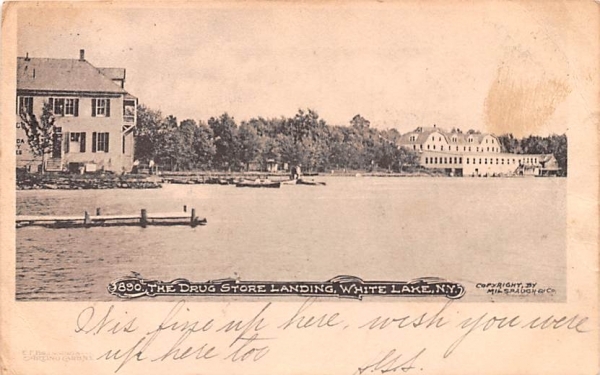 890. THE DRUG STORE LANDING, WHITE LAKE, N.Y.
COPYRIGHT, BY
MILSPAUGH & CO.
Tis fine up here, wish you were
up here too